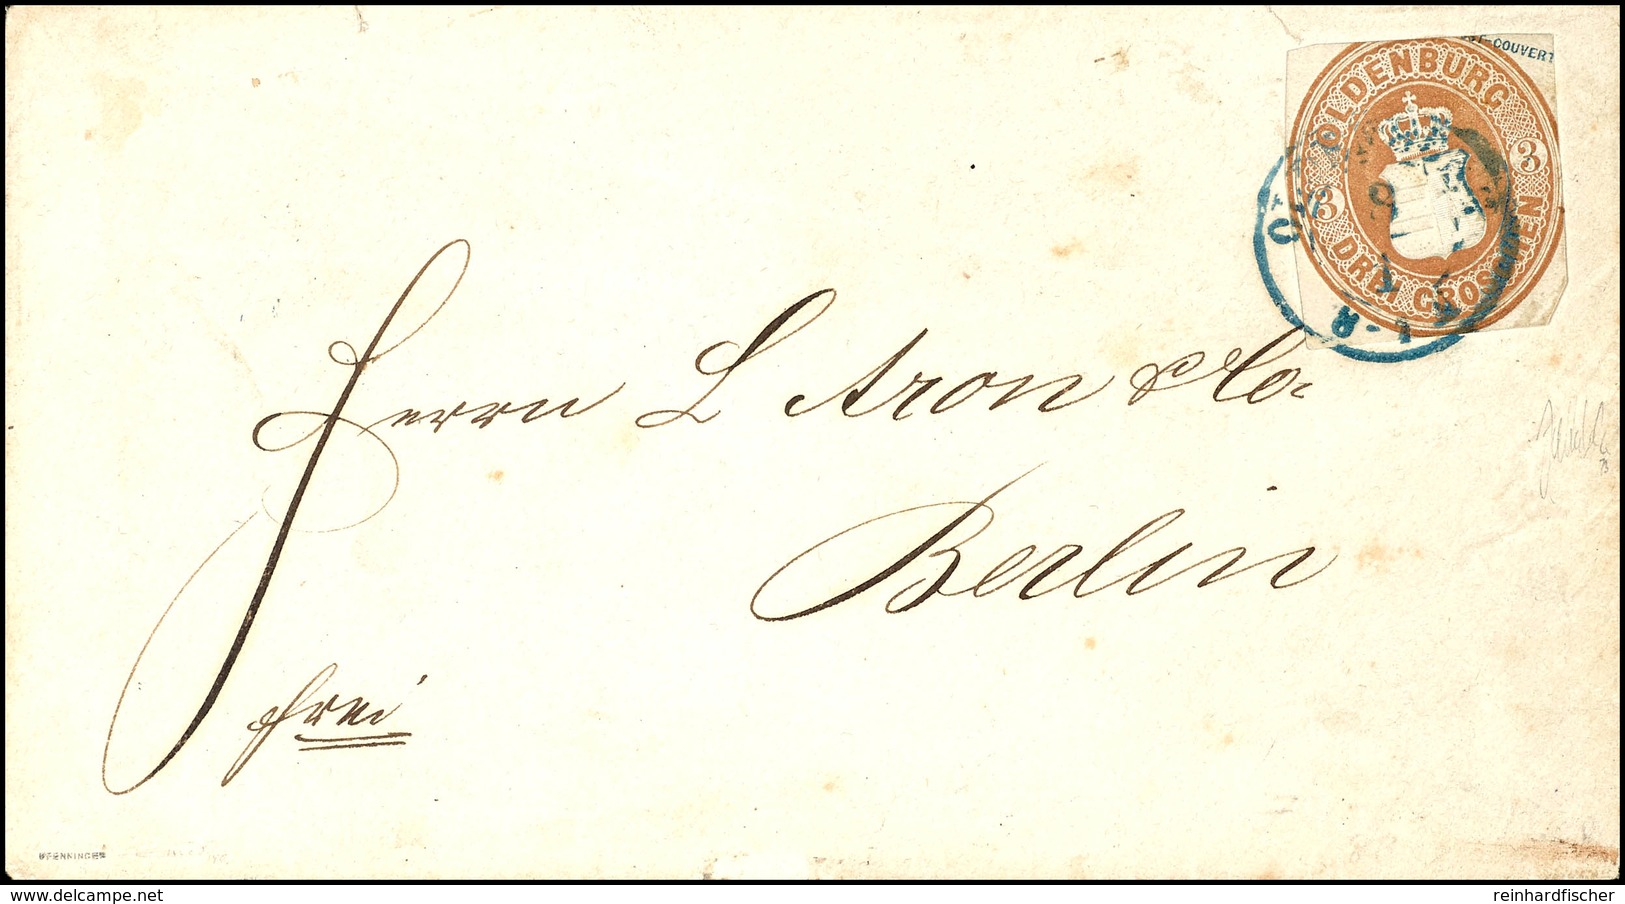 T-COUVERT
OLDENBURG
3 3
DREI GROSCHEN
Herrn L Aron & Co.
Berlin
frei
PFENNINGER
delcampe.net
reinhardfischer